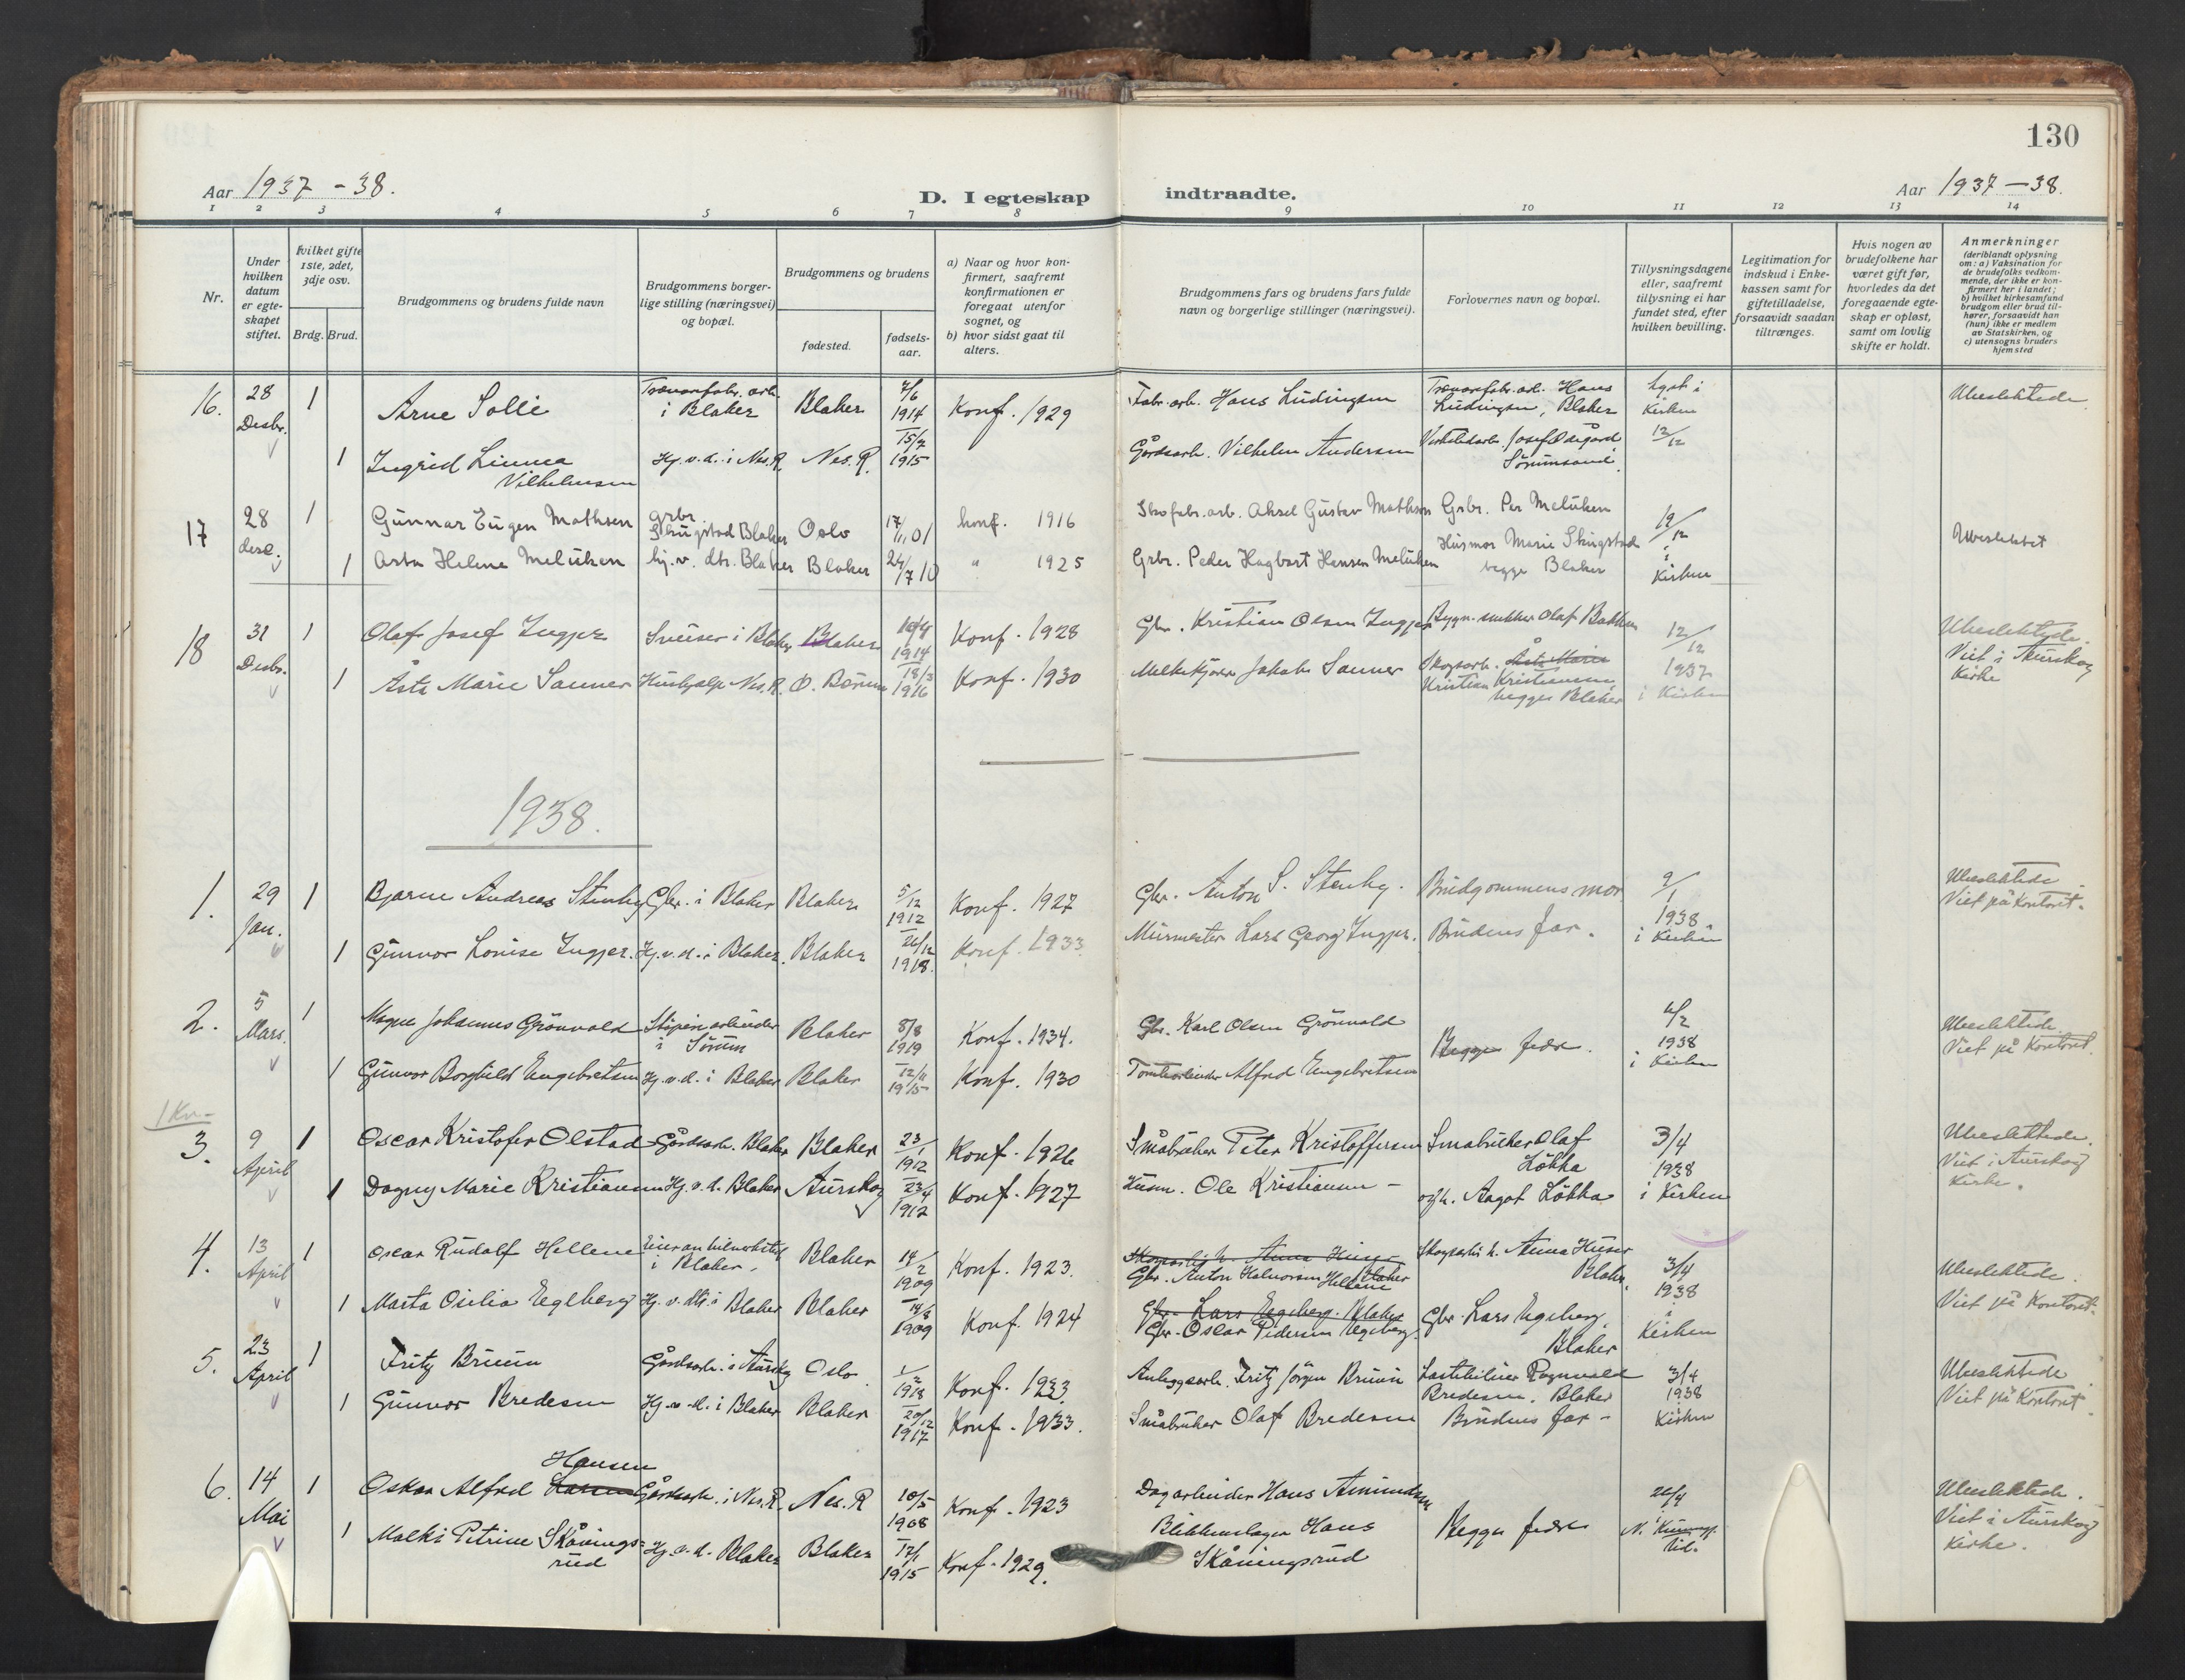 130
Aar 1937 - 38.
D. I egteskap indtraadte.
Aar 1937 - 38.
1 2 3 4 5 6 7 8 9 10 11 12 13 14
Nr.
Under
hvilken
datum
er egte-
skapet
stiftet.
Hvilket gifte
1ste, 2det,
3dje osv.
Brdg. Brud.
Brudgommens og brudens fulde navn
Brudgommens borger-
lige stilling (næringsvei)
og bopæl.
Brudgommens og brudens
fødested.
fødsels-
aar.
a) Naar og hvor kon-
firmert, saafremt
konfirmationen er
foregaat utenfor
sognet, og
b) hvor sidst gaat til
alters.
Brudgommens fars og brudens fars fulde
navn og borgerlige stillinger (næringsvei).
Forlovernes navn og bopæl.
Tillysningsdagene
eller, saafremt
tillysning ei har
fundet sted, efter
hvilken bevilling.
Legitimation for
indskud i Enke-
kassen samt for
giftetilladelse,
forsaavidt saadan
tiltrænges.
Hvis nogen av
brudefolkene har
været gift før,
hvorledes da det
foregaaende egte-
skap er opløst,
samt om lovlig
skifte er holdt.
Anmerkninger
(deriblandt oplysning
om: a) Vaksination for
de brudefolks vedkom-
mende, der ikke er kon-
firmert her i landet;
b) hvilket kirkesamfund
brudgom eller brud til-
hører, forsaavidt han
(hun) ikke er medlem
av Statskirken, og
c) utensogns bruders
hjemsted
16. 28 Desbr. 1 Arne Solli Trævarefabr. arb. i Blaker Blaker 7/6 1914 Konf. 1929 Fabr. arb. Hans Ludvigsen Trævarefabr. arb. Hans Ludvigsen, Blaker Lyst i Kirken 12/12 Ubeslektede
1 Ingrid Linnea Vilhelmsen Hj.v.d. i Nes.R. Nes.R. 15/7 1915 Gårdsarb. Vilhelm Andersen Josef Ødegård Sørumsand.
17 28 des. 1 Gunnar Eugen Mathsen grbr. Skugstad Blaker Oslo 17/11 01 konf. 1916 Skofabr. arb. Aksel Gustav Mathsen Grbr. Per Meluken 12/12 i Kirken Ubeslektet
1 Asta Helene Meluken hj.v. dtr. Blaker Blaker 24/7 10 " 1925 Grbr. Peder Hagbart Hansen Meluken Husmor Marie Skugstad begge Blaker
18 31 Desbr. 1 Olaf Josef Ingjer Sveiser i Blaker Blaker 1914 Konf. 1928 Gbr. Kristian Olsen Ingjer Bygn. snekker Olaf Bakken 12/12 1937 i Kirken Ubeslektede. Viet i Aurskog Kirke
1 Åsta Marie Sanner Hushjælp Nes.R. Ø. Bærum 18/3 1916 Konf. 1930 Melkekjører Jakob Sanner Skogsarb. Åsta Marie Kristian Kristiansen, begge Blaker
1938.
1. 29 Jan. 1 Bjarne Andreas Stenby Gbr. i Blaker Blaker 5/12 1912 Konf. 1927 Gbr. Anton S. Stenby. Brudgommens mor 9/1 1938 i Kirken Ubeslektede Viet på Kontoret.
1 Gunvor Lovise Ingjer. Hj.v.d. i Blaker. Blaker 26/12 1918. Konf. 1933. Murmester Lars Georg Ingjer. Brudens far.
2. 5 Mars. 1 Magne Johannes Grönvold Stöperiarbeider i Sörum Blaker 8/8 1919 Konf. 1934. Gbr. Karl Olsen Grönvold Begges fedre. 1938 i Kirken Ubeslektede. Viet på Kontoret.
1 Gunvor Borghild Engebretsen Hj.v.d. i Blaker Blaker 12/11 1915 Konf. 1930 Tomtearbeider Alfred Engebretsen
3. 9 April 1 Oscar Kristofer Olstad Gårdsarb. Blaker Blaker 23/1 1912 Konf. 1926 Småbruker Peter Kristoffersen Småbruker Olaf Lökka 3/4 1938 i Kirken Ubeslektede. Viet i Aurskog Kirke.
1 Dagny Marie Kristiansen Hj.v.d. Blaker Aurskog 23/4 1912 Konf. 1927 Husm. Ole Kristiansen - Aagot Lökka
4. 13 April 1 Oscar Rudolf Hellene i Blaker. Blaker 14/2 1909 Konf. 1923. Skogsarb. h. Anna Huser Blaker Gbr. Anton Halvorsen Hellene Skogsarb. h. Anna Huser Blaker. 3/4 1938 i Kirken Ubeslektede. Viet på Kontoret.
1 Marta Osilia Egeberg Hj.v. dtr. i Blaker Blaker 14/8 1909 Konf. 1924 Gbr. Lars Egeberg. Blaker Gbr. Oscar Pedersen Egeberg. Gbr. Lars Egeberg, Blaker
5. 23 April 1 Fritz Bruun Gårdsarb. i Aurskog Oslo 1/2 1918 Konf. 1933 Anleggsarb. Fritz Jörgen Bruun Lastebileier Ragnvald Bredesen. Blaker 3/4 1938 i Kirken Ubeslektede. Viet på Kontoret.
1 Gunvor Bredesen Hj.v.d. i Blaker Blaker 20/12 1917 Konf. 1933. Småbruker Olaf Bredesen Brudens far -
6. 14 Mai 1 Oskar Alfred Larsen Hansen Gårdsarb. i Nes.R. Nes.R 10/5 1908 Konf. 1923 Dagarbeider Hans Amundsen Begges fedre 24/4 Ubeslektede. Viet i Aurskog Kirke.
1 Malki Petrine Skånings-rud Hj.v.d. Blaker Blaker 17/1 1915 Konf. 1929. Blikkenslager Hans Skåningsrud